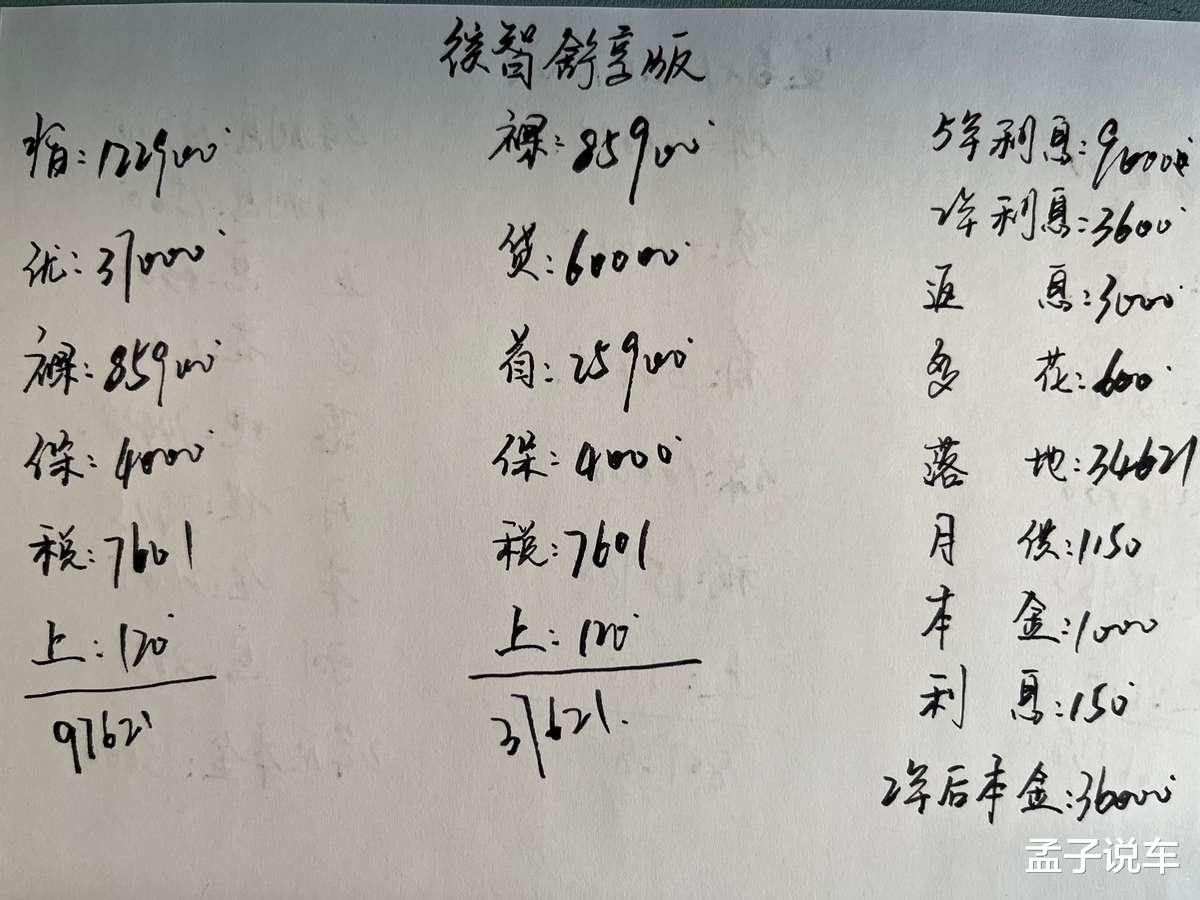 缤智舒享版
指:122900
优:37000
裸:85900
保:4000
税:7601
上:120
97621
裸:85900
贷:60000
首:25900
保:4000
税:7601
上:120
37621.
5年利息:9000
2年利息:3600
返息:3000
多花:600
落地:34621
月供:1150
本金:1000
利息:150
2年后本金:36000
孟子说车